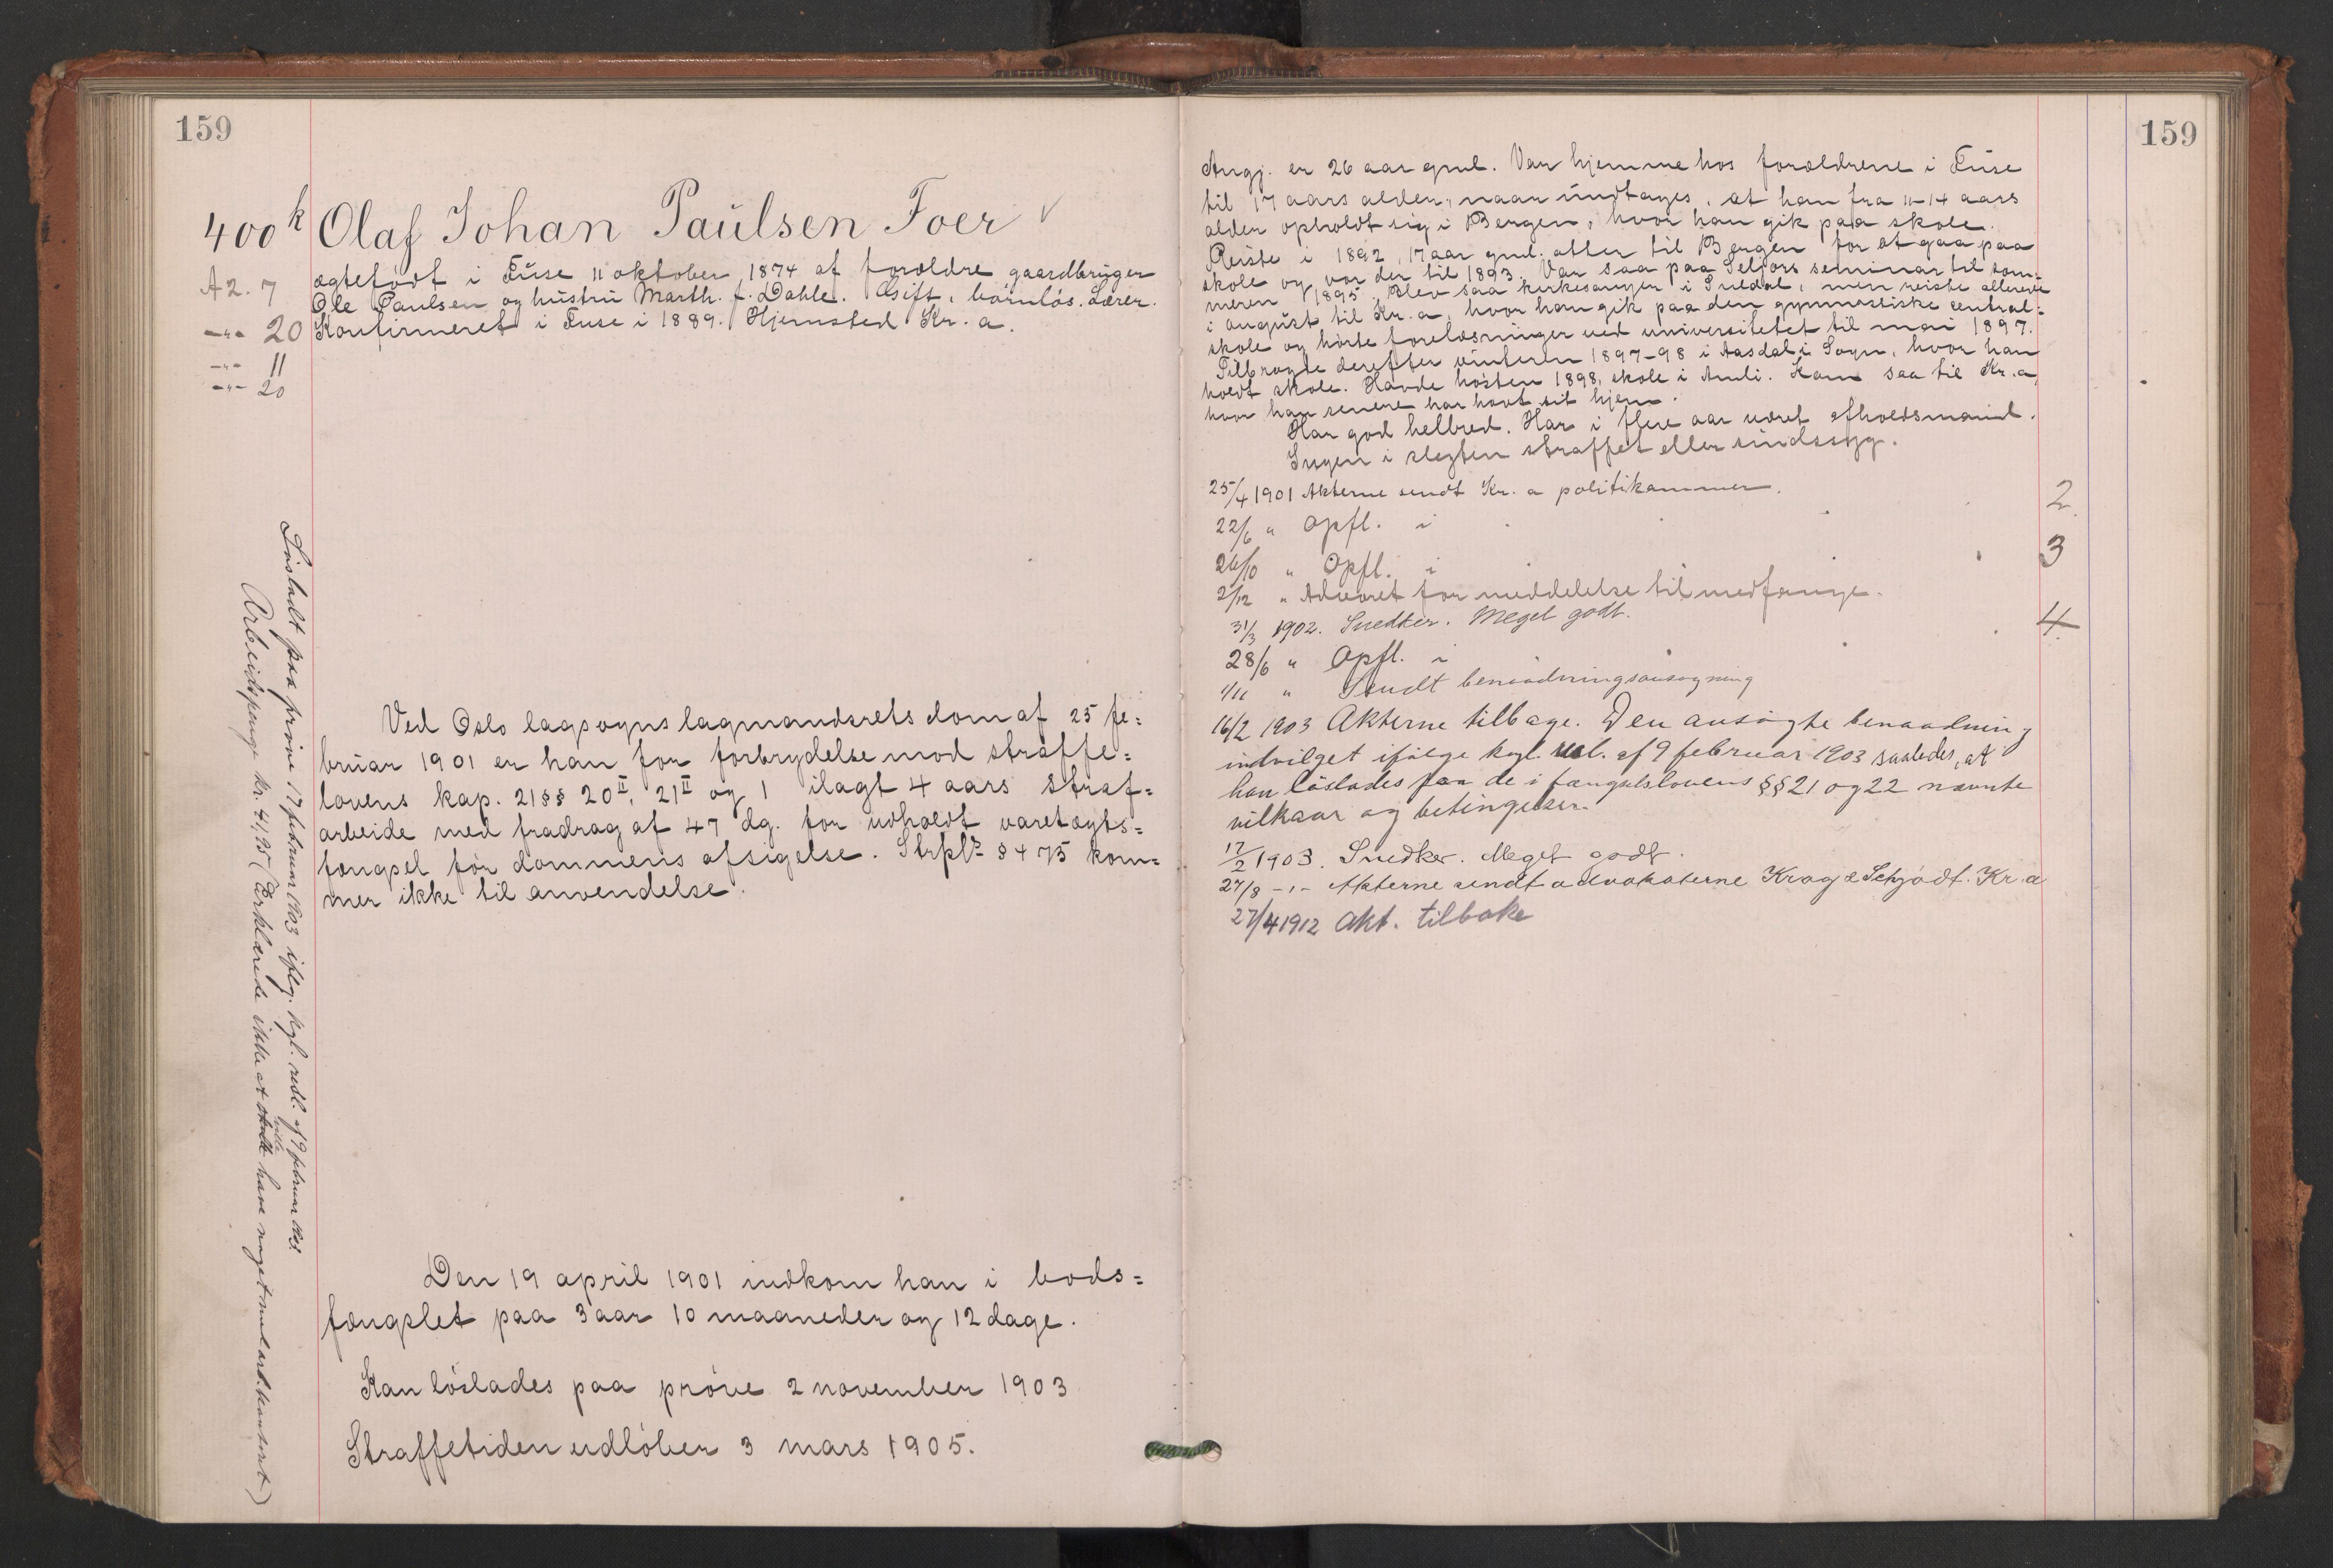 159
400k Olaf Johan Paulsen Foer √
ægtefødt i Fuse 11 oktober 1874 af forældre gaardbruger
Ole Paulsen og hustru Marth. f. Dahle. Gift, barnløs. Lærer.
Konfirmeret i Fuse i 1889. Hjemsted Kr.a.
A2. 7
-"- 20
-"- 11
-"- 20
Løsladt paa prøve 17 februar 1903 iflg. kgl. resl. af 9 februar 1903.
Arbeidspenge kr. 41,95 (Erklærede ikke at skulle ville have noget mul arb. kontoret)
Ved Oslo lagsogns lagmandsrets dom af 25 fe=
bruar 1901 er han for forbrydelse mod straffe=
lovens kap. 21 §§ 20 II, 21 II og 1 ilagt 4 aars straf=
arbeide med fradrag af 47 dg. for udholdt varetægts=
fængsel før dommens afsigelse. Strpl's § 475 kom=
mer ikke til anvendelse.
Den 19 april 1901 indkom han i bods=
fængslet paa 3 aar 10 maaneder og 12 dage.
Kan løslades paa prøve 2 november 1903
Straffetiden udløber 3 mars 1905.
159
Angj. er 26 aar gml. Var hjemme hos forældrene i Fuse
til 17 aars alder, naar undtages, at han fra 11-14 aars
alder opholdt sig i Bergen, hvor han gik paa skole.
Reiste i 1892, 17 aar gml. atter til Bergen for at gaa paa
skole og var der til 1893. Var saa paa Seljors seminar til som=
meren 1895. Blev saa kirkesanger i Suldal, men reiste allerede
i august til Kr.a, hvor han gik paa den gymnastiske central=
skole og hørte forelæsninger ved universitetet til mai 1897.
Tilbragte derefter vinteren 1897-98 i Aasdal i Sogn, hvor han
holdt skole. Havde høsten 1898 skole i Amli. Kom saa til Kr.a,
hvor han senere har havt sit hjem.
Har god helbred. Har i flere aar været afholdsmand.
Ingen i slegten straffet eller sindssyg.
25/4 1901 Akterne sendt Kr.a politikammer.
22/6 " Opfl. i 2.
26/10 " Opfl. i 3
2/12 " Advaret for meddelelse til medfange.
31/3 1902. Snedker. Meget godt.
28/6 " Opfl. i 4.
1/11 " Sendt benaadningsansøgning
16/2 1903 Akterne tilbage. Den ansøgte benaadning
indvilget ifølge kgl. resl. af 9 februar 1903 saaledes, at
han løslades paa de i fængselslovens §§ 21 og 22 nævnte
vilkaar og betingelser.
17/2 1903. Snedker. Meget godt.
27/8 -"- Akterne sendt advokaterne Krag & Schjødt. Kr.a
27/4 1912 Akt. tilbake